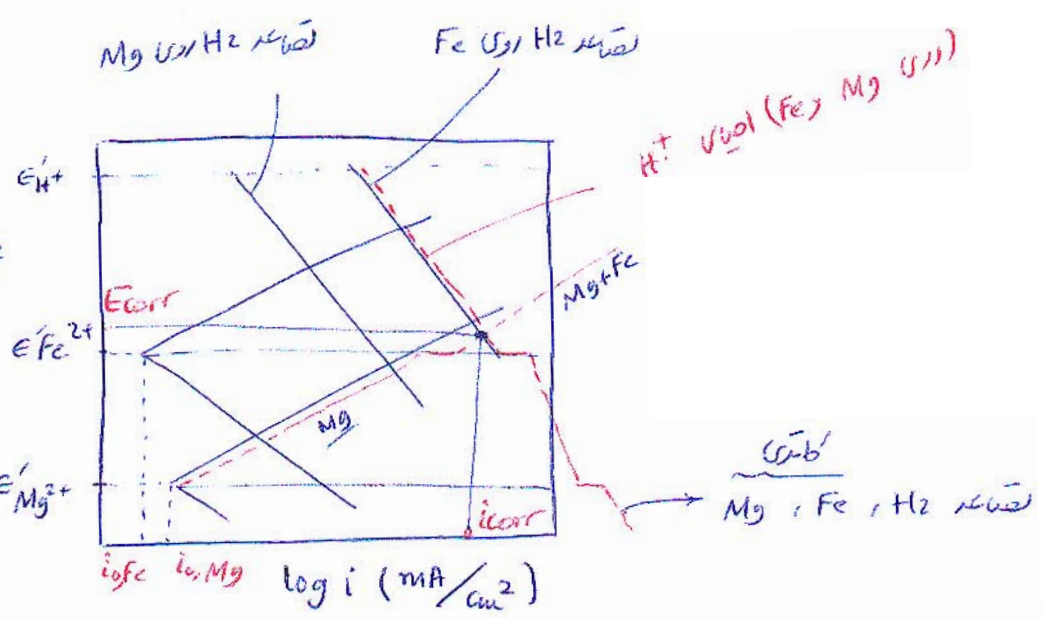 تصاعد H2 روی Mg
تصاعد H2 روی Fe
احیای H⁺ (روی Mg و Fe)
ϵ'H⁺
Ecorr
ϵ'Fe²⁺
ϵ'Mg²⁺
Mg+Fe
Mg
icorr
i₀,Fe
i₀,Mg
log i (mA/cm²)
کاتدی
تصاعد H2 ، Fe ، Mg